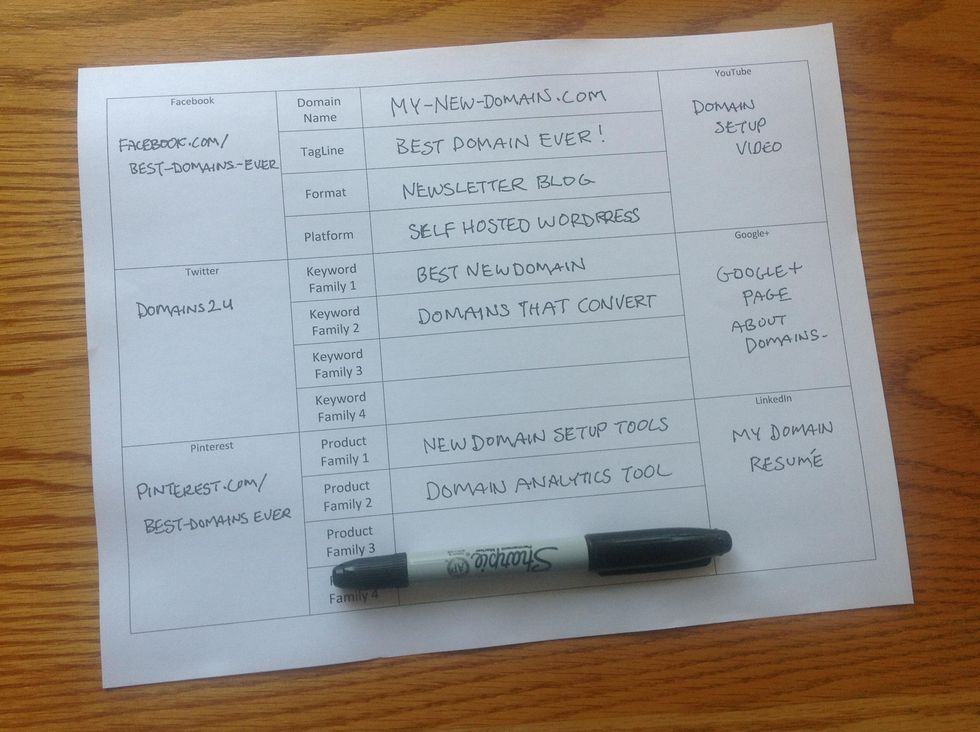 Facebook
FACEBOOK.COM/
BEST-DOMAINS-EVER
Twitter
DOMAINS2U
Pinterest
PINTEREST.COM/
BEST-DOMAINS EVER
Domain
Name
MY-NEW-DOMAIN.COM
TagLine
BEST DOMAIN EVER!
Format
NEWSLETTER BLOG
Platform
SELF HOSTED WORDPRESS
Keyword
Family 1
BEST NEW DOMAIN
Keyword
Family 2
DOMAINS THAT CONVERT
Keyword
Family 3
Keyword
Family 4
Product
Family 1
NEW DOMAIN SETUP TOOLS
Product
Family 2
DOMAIN ANALYTICS TOOL
Product
Family 3
Family 4
Sharpie
AP
YouTube
DOMAIN
SETUP
VIDEO
Google+
GOOGLE+
PAGE
ABOUT
DOMAINS-
LinkedIn
MY DOMAIN
RESUMÉ